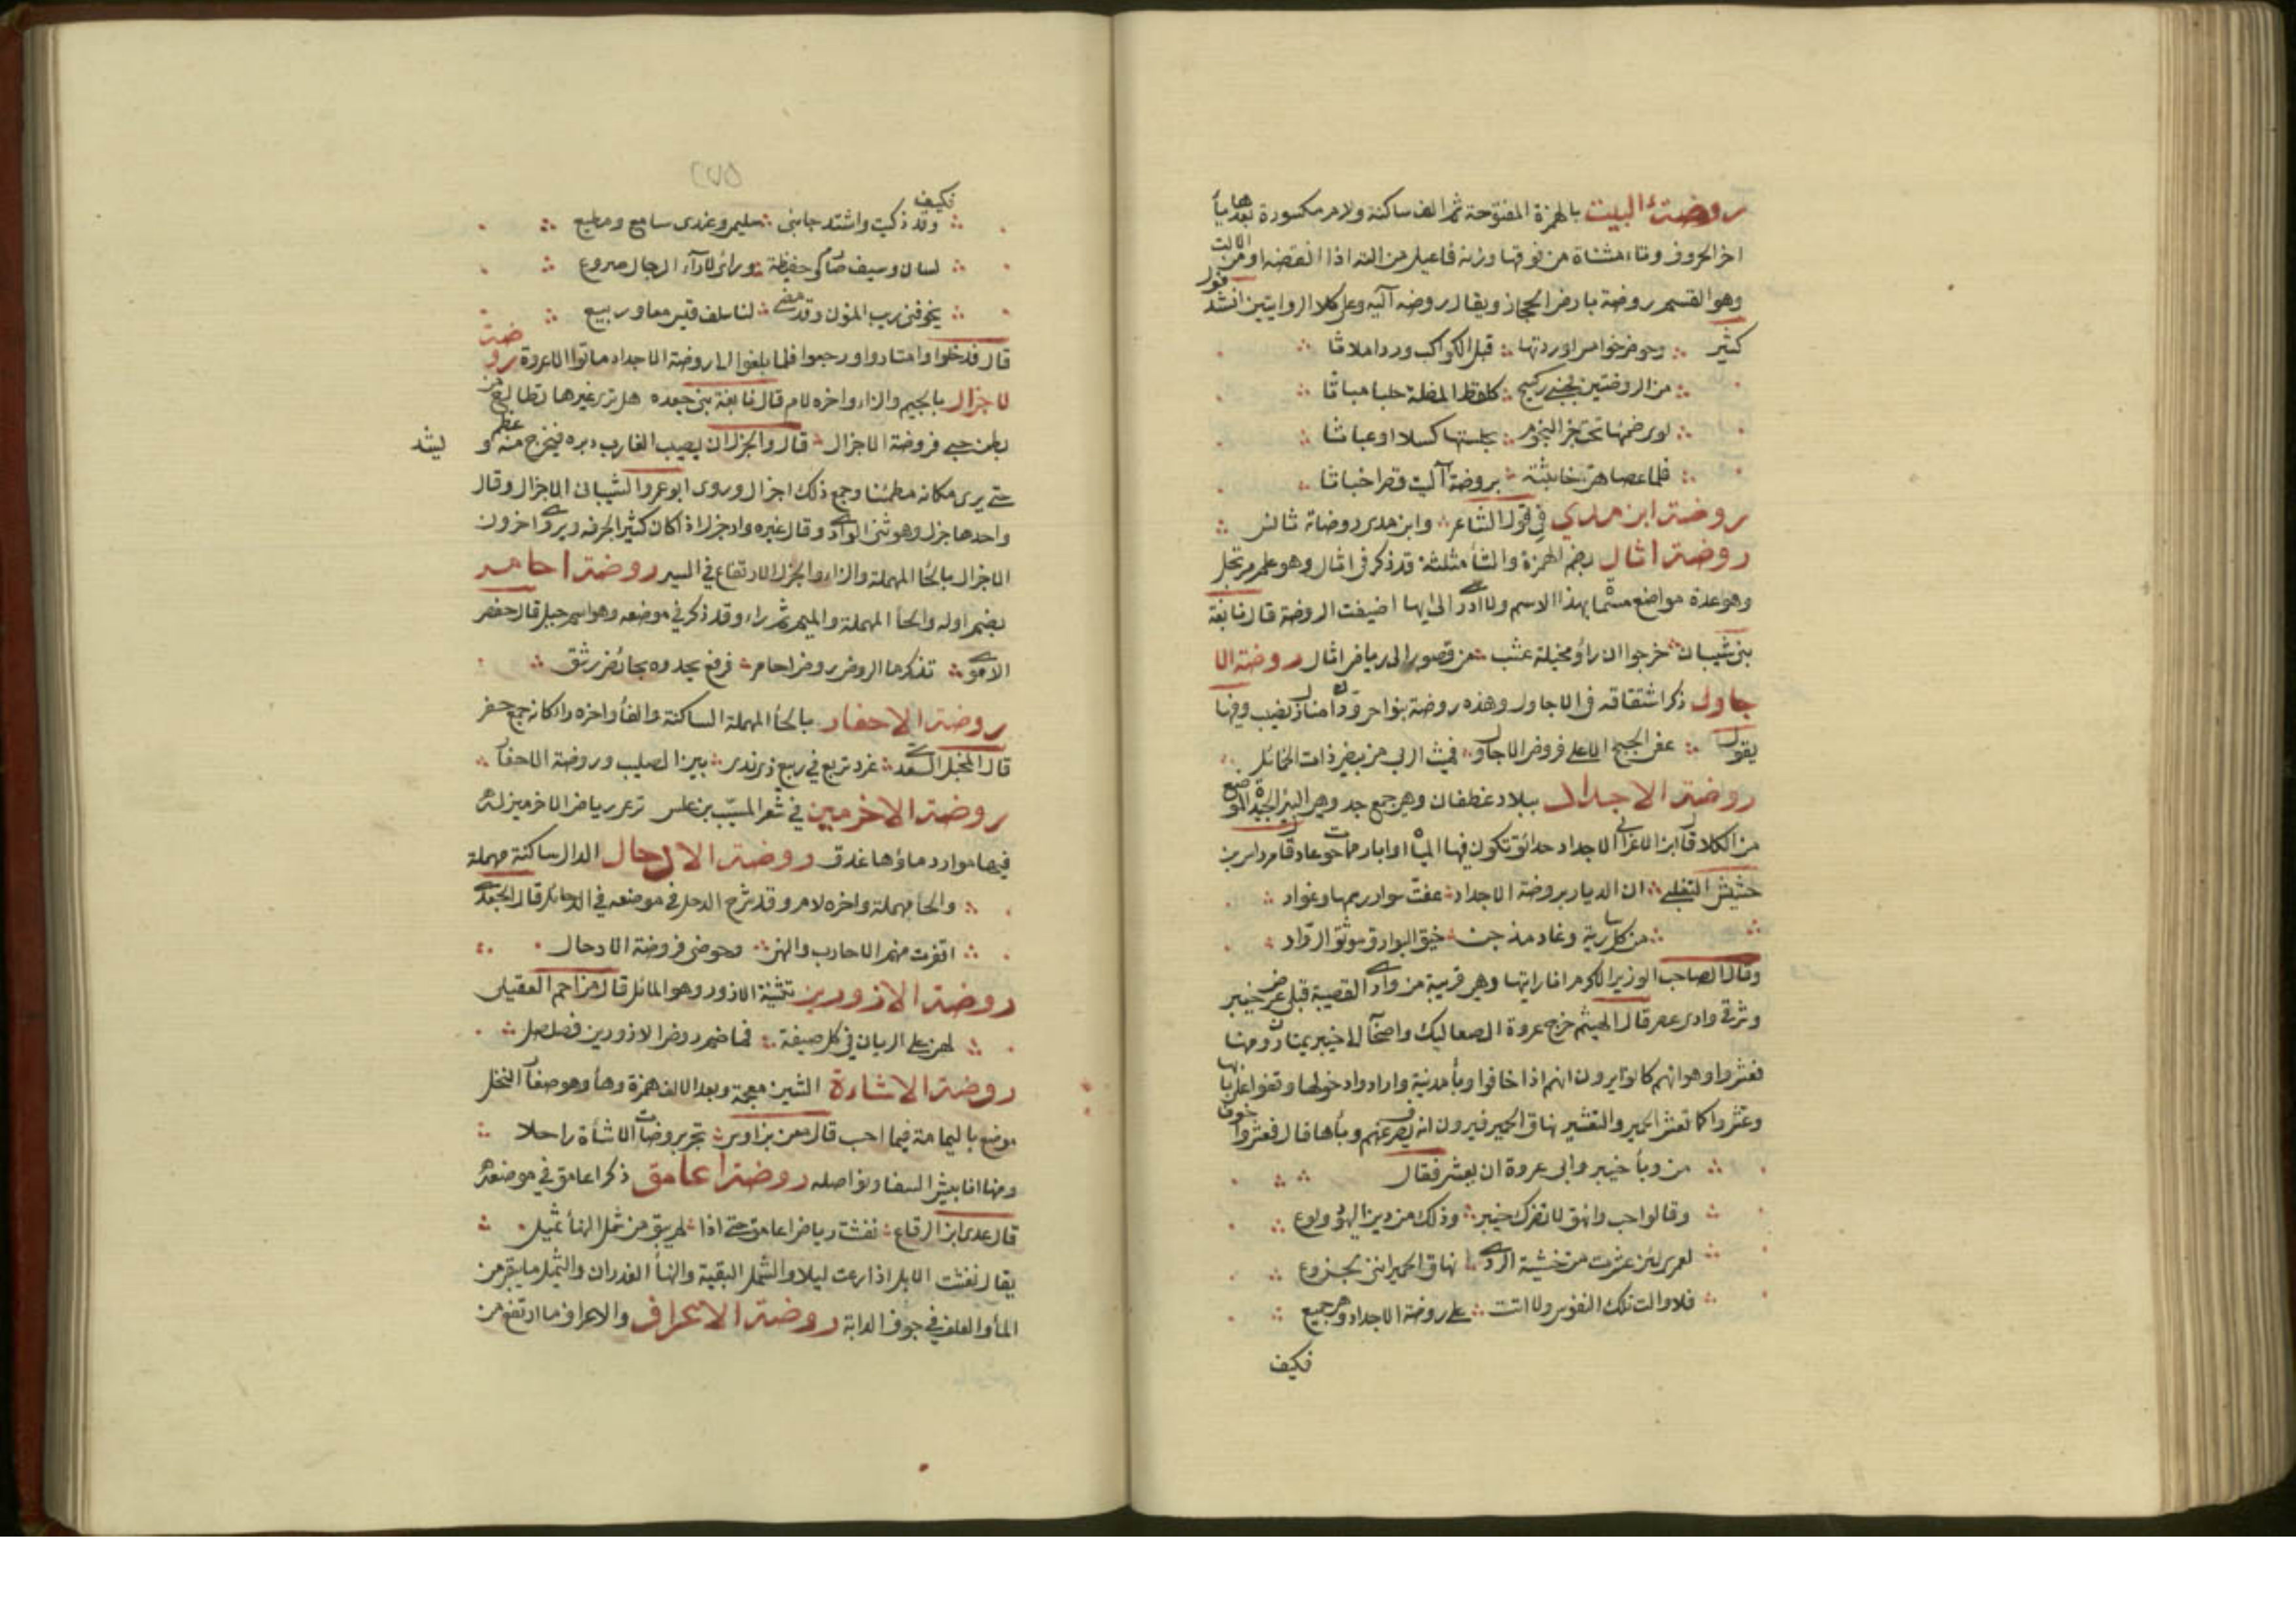 روضة أليت بالهمزة المفتوحة ثم الف ساكنة ولام مكسورة بعدها يآ
اخر الحروف وتاء مثناة من فوقها وزنه فاعيل من الته اذا انقصه او من الالت
وهو القسم روضة بارض الحجاز ويقال روضة آليه وعلى كلا الروايتين انشد قول
كثير وخوص خوامس اوردتها قبل الكواكب وردا ملاثا
من الروضتين بجنبي ركيح كلفظ المضلة حليا مباثا
لوى ضمها تحت حر النجوم يحلستها كسلا او عباثا
فلما عصاهن خابثنه بروضة آليت وقصرا خباثا
روضة ابن مدي في قول الشاعر وابن مدى روضاته تانس
روضة اثال بضم الهمزة والثأ مثلثة قد ذكر في اثال وهو علم مرتجل
وهو عدة مواضع مسما بهذا الاسم ولا ادرى الى ايها اضيفت الروضة قال نابغة
بني شيبان خرجوا ان راو مخيلة عشب من قصور الى رياض اثال روضة الا
جاول ذكر اشتقاقه في الاجاول وهذه روضة بنواحي ودان منازل نصيب وفيها
يقول عفى الحبج الاعلى فروض الاجاول فميث الربى من بيض ذات الخمائل
روضة الاجداد ببلاد غطفان وهي جمع جد وهي البئر الجيدة الموضع
من الكلا قال ابن الاعرابي الاجداد حدائق تكون فيها المياه او ابار مما حوت عاد قال مرداس بن
حشيش التغلبي ان الديار بروضة الاجداد عفت سوار رسمها وغواد
من كل سارية وغاد مدجن خنق البوارق مونق الرواد
وقال الصاحب الوزير الاكرم انا رايتها وهي قريبة من وادي القصيبة قبلى عرض خيبر
وشرقي وادى عصر قال الهيثم خرج عروة الصعاليك واصحابه الى خيبر يمتارون منها
فعشروا وهو انهم كانوا يرون انهم اذا خافوا وبأ مدينة وارادوا دخولها وقفوا على بابها
وعشروا كما تعشر الحمير والتعشير نهاق الحمير فيرون انه يصرف عنهم وبأها قال فعشروا خوفا
من وبأ خيبر وابى عروة ان يعشر فقال
وقالوا احب وانهق لا تضرك خيبر وذلك من دين اليهود ولوع
لعمري لئن عشرت من خشية الردى نهاق الحمير انني لجزوع
فلا والت تلك النفوس ولا اتت على روضة الاجداد وهي جميع
فكيف
٢٧٥
فكيف وقد ذكيت واشتد جانبي سليمى وعندى سامع ومطيع
لسان وسيف صارم وحفيظة وراى لارآء الرجال صروع
يخوفني ريب المنون وقد مضى لنا سلف قيس معا وربيع
قال فدخلوا وامتاروا ورجعوا فلما بلغوا الى روضة الاجداد ماتوا الا عروة روضة
لاجزال بالجيم والزاء واخره لام قال نابغة بني جعده هل ترى غيرها تطالع من
بطن حبي فروضة الاجزال قال والجزل ان يصيب الغارب دبره فيخرج منه عظم و ليشد
حتى يرى مكانه مطمئنا وجمع ذلك اجزال وروى ابو عمرو الشيباني الاجزال وقال
واحدها جزل وهو ثنى الوادى وقال غيره واد جزل اذا كان كثير الجرفه ويروى اخرون
الاجزال بالحأ المهملة والزاء والجزل الارتفاع في السير روضة احامر
بضم اوله والحأ المهملة والميم ثم راء وقد ذكر في موضعه وهو اسم جبل قال حفص
الاموي تذكرها الروض روض احامر فرفع يحدوه بجائض رشق
روضة الاحفار بالحأ المهملة الساكنة والفأ واخره را كانه جمع حفر
قال المخبل السعدي غرد تربع في ربيع ذي ندى بين الصليب وروضة الاحفار
روضة الاخرمين في شعر المسيب بن علس ترعى رياض الاخرمين له
فيها موارد ماؤها غدق روضة الادحال الدال ساكنة مهملة
والحأ مهملة واخره لام وقد شرح الدحل في موضعه في الدحائل قال الجعدي
اقفرت منهم الاحارب والنهي وحوضى فروضة الادحال
روضة الازورين تثنية الازور وهو المائل قال مزاحم العقيلي
لهن على الريان في كل صيفة فما ضم روض الازورين فصلصل
روضة الاشاءة الشين معجمة وبعد الالف همزة وهأ وهو صغار النخل
موضع باليمامة فيما احب قال معن بن اوس تجر بروضات الاشأة راحلا
ومنها انابيش السفا ونواصله روضة اعامق ذكر اعامق في موضعه
قال عدى ابن الرقاع نفشت رياض اعامق حتى اذا لم يبق من شمل النهأ ثميل
يقال نفشت الابل اذا رعت ليلا والشمل البقية والنهأ الغدران والثميل ما يبقى من
المأ والعلف في جوف الدابة روضة الاعراف والاعراف ما ارتفع من